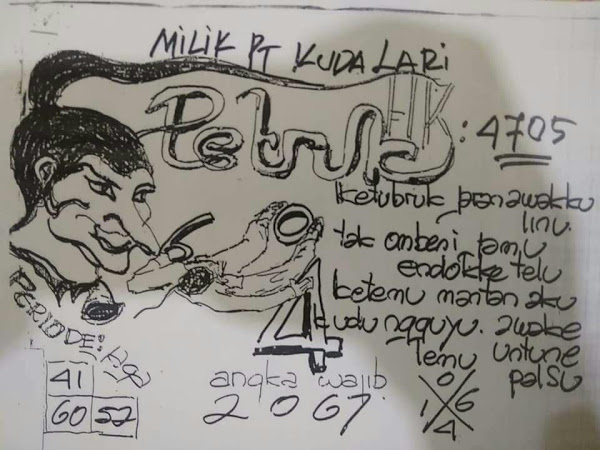 MILIK PT KUDA LARI
Petruk : 4705
ketubruk pran awakku
linu.
tak ombeni jamu
endokke telu
ketemu mantan aku
kudu ngguyu. awake
lemu untune
palsu
4
PERIODE:
41
60 52
angka wajib
2 0 6 7
0
1 6
4